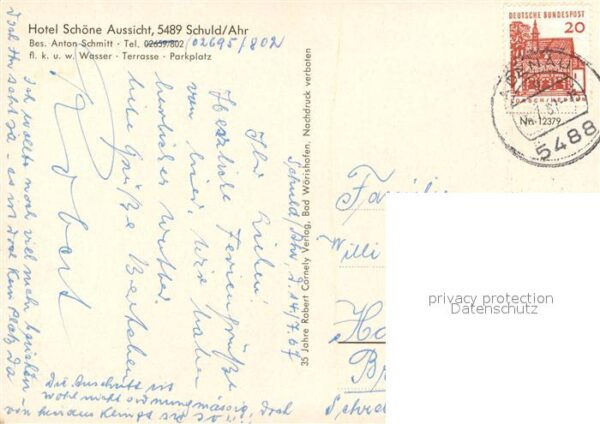 Hotel Schöne Aussicht, 5489 Schuld/Ahr
Bes. Anton Schmitt - Tel. 02659/802 02695/802
fl. k. u. w. Wasser - Terrasse - Parkplatz
DEUTSCHE BUNDESPOST
20
LORSCH/HESSEN
ADENAU
5488
No. 12379
Schuld/Ahr, d. 14/7.67
Ihr Lieben!
Herzliche Feriengrüße
von hier. Wir haben
herrliches Wetter.
Liebe Grüße
Robert
Ich wollte noch viel mehr berichten -
doch Ihr seht ja - es ist doch kein Platz da
Die Anschrift ist
wohl nicht ordnungsmässig, doch
von
35 Jahre Robert Cornely Verlag, Bad Wörishofen. Nachdruck verboten
Familie
Willi
privacy protection
Datenschutz